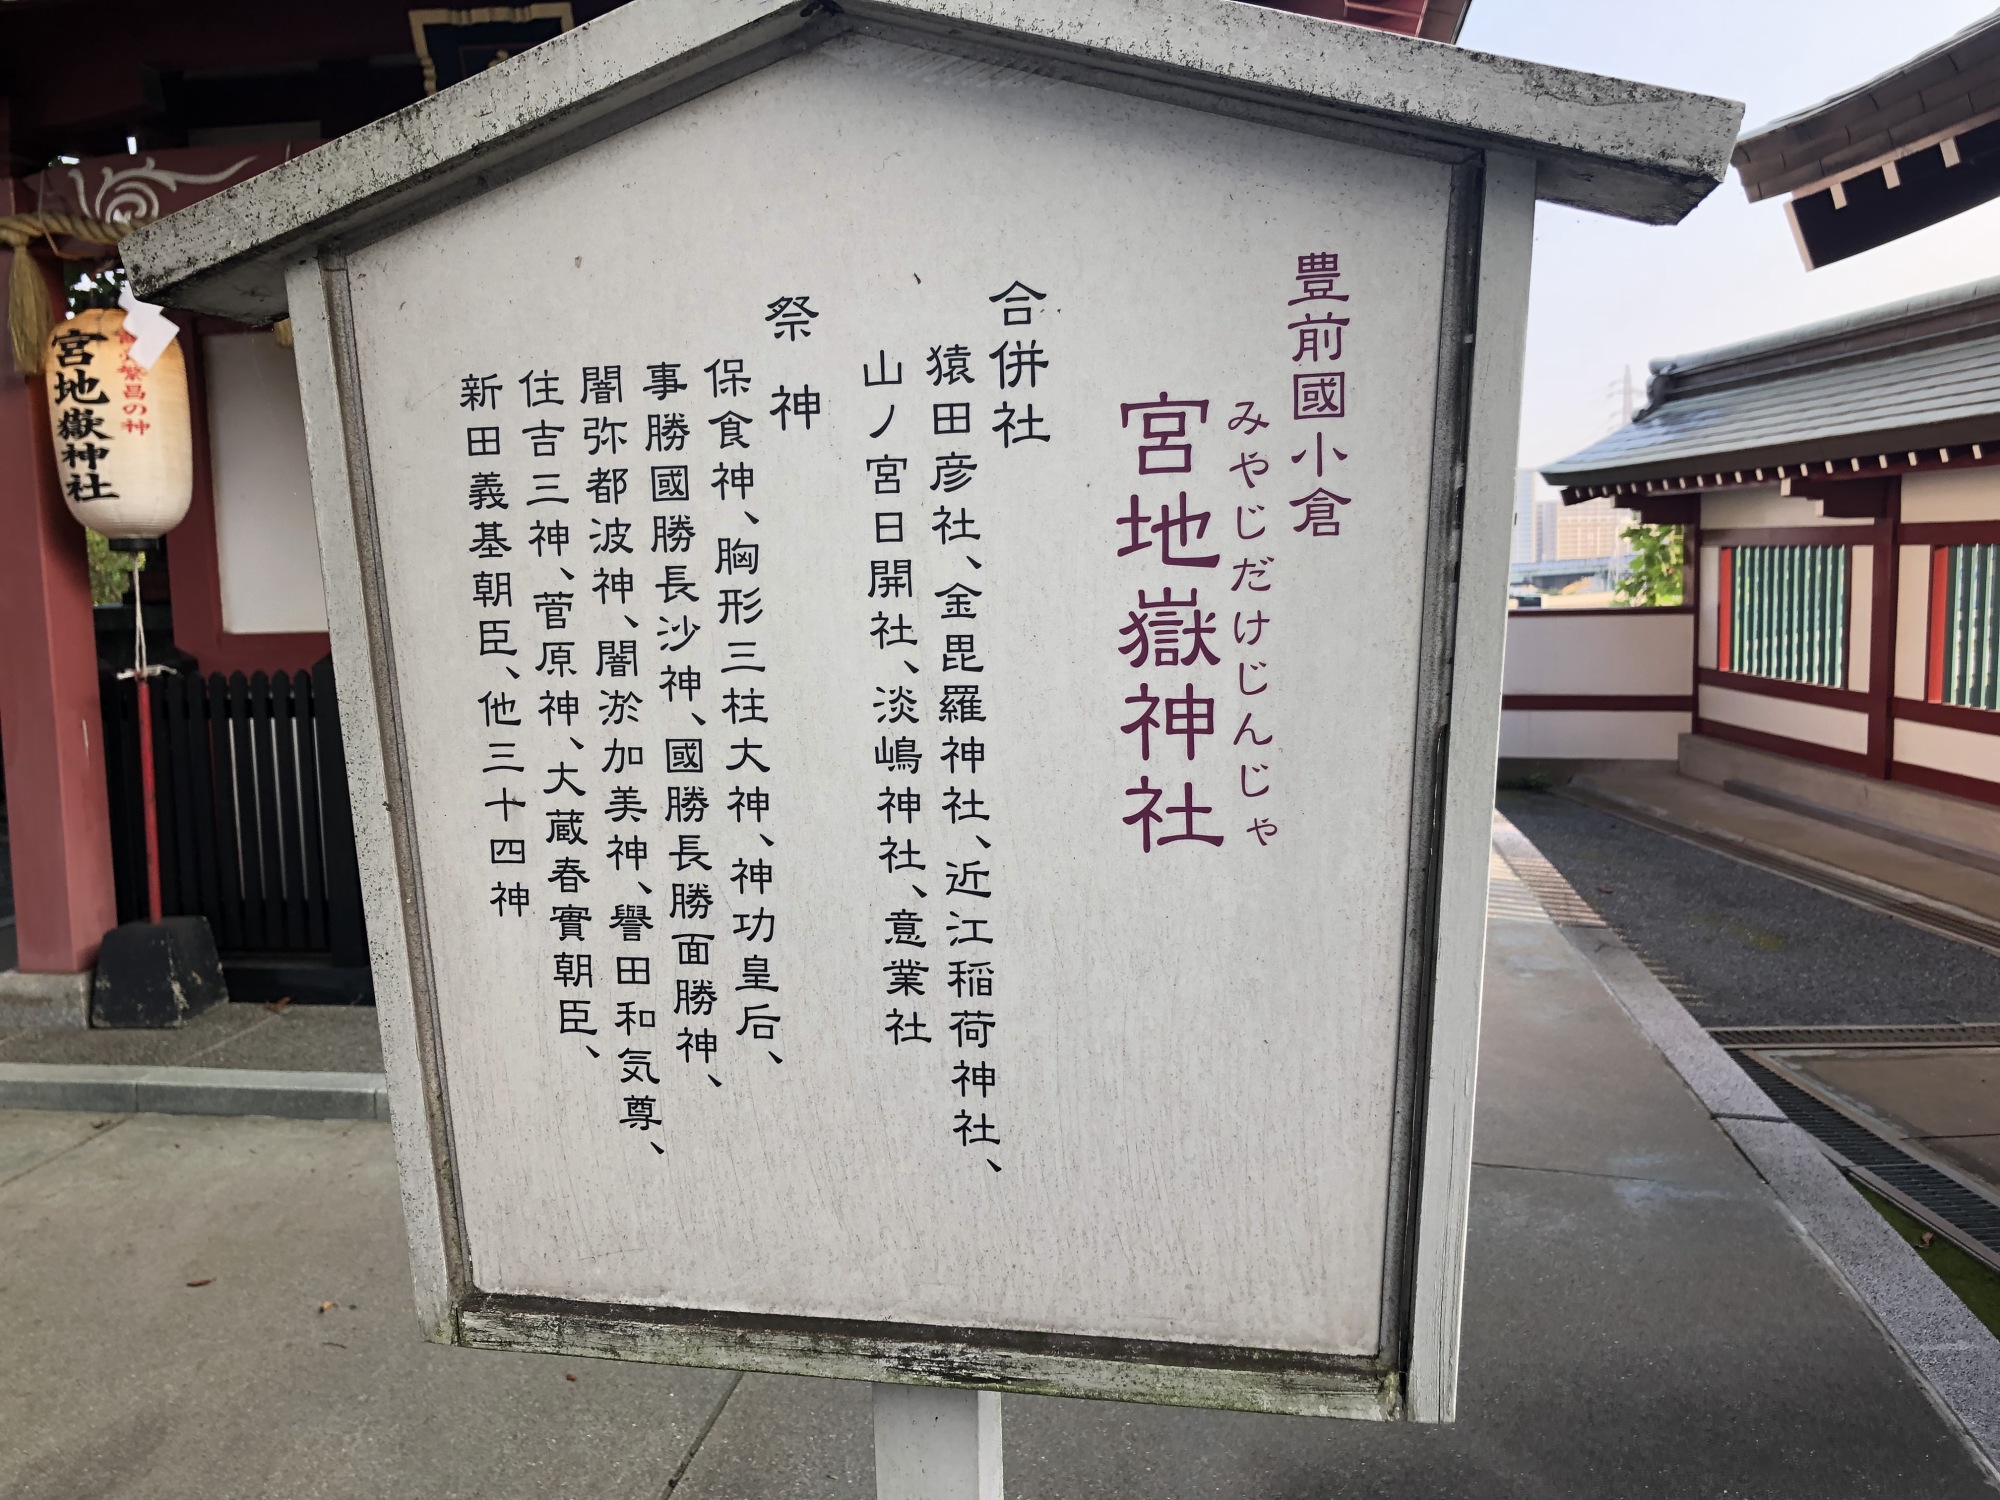 豊前國小倉
みやじだけじんじゃ
宮地嶽神社
合併社
猿田彦社、金毘羅神社、近江稲荷神社、
山ノ宮日開社、淡嶋神社、意業社
祭神
保食神、胸形三柱大神、神功皇后、
事勝國勝長沙神、國勝長勝面勝神、
闇弥都波神、闇淤加美神、譽田和気尊、
住吉三神、菅原神、大蔵春實朝臣、
新田義基朝臣、他三十四神
繁昌の神
宮地嶽神社